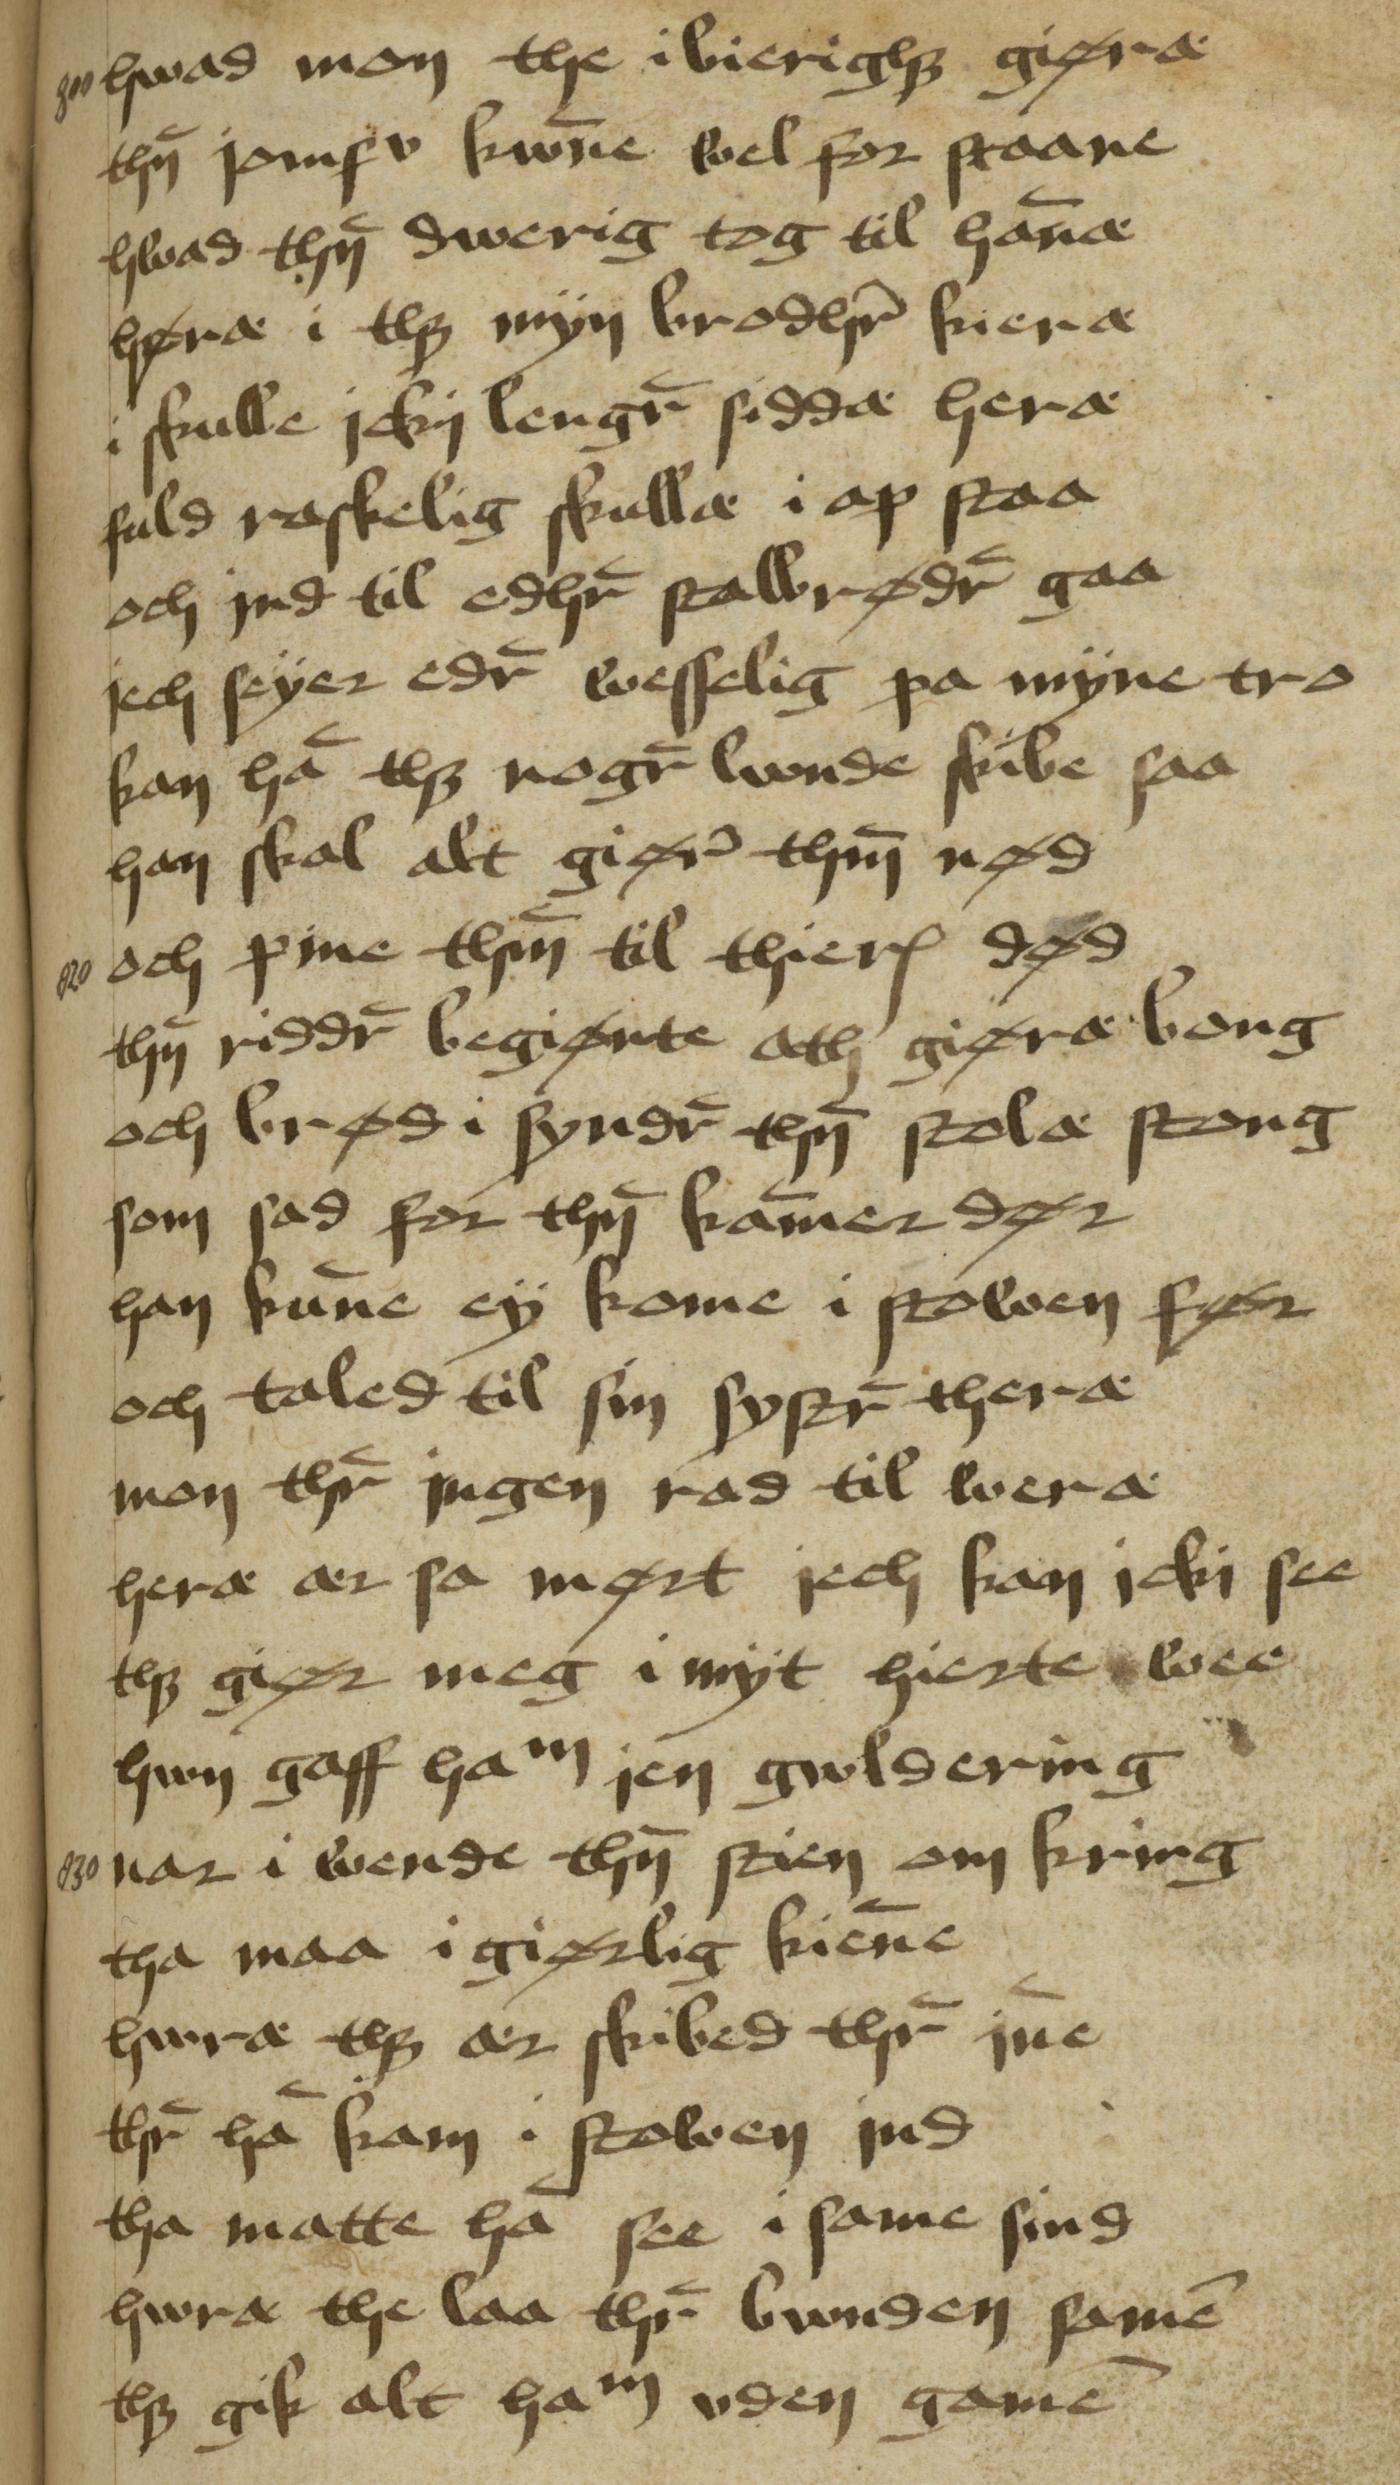 810 hwad mon the i bierigꝫ giøræ
thn̄ jomfv kwn̄e wel for staane
hwad thn̄ dwerig tog til han̄æ
høræ i thꝫ mÿn brodhr̄ kieræ
i skulle jckij lengr̄ siddæ heræ
fuld raskelig skullæ i op staa
och jnd til edhr̄ stallbrødr̄ gaa
jech seÿer edr̄ wesselig pa mÿne tro
kan hā thꝫ nogr̄ lwnde skibe saa
han skal alt giør̄ thm̄ nød
820 och pine thm̄ til thierſ død
thn̄ riddr̄ begiønte ath giøræ bong
och brød i syndr̄ thn̄ stolæ stong
som sad for thn̄ kam̄er dør
han kun̄e eÿ kome i stowen før
och taled til sin systr̄ theræ
mon thr̄ jngen rad til weræ
heræ ær sa mørt jech kan jckj see
thꝫ giør meg i mÿt hierte wee
hwn gaff haᵐ jen gwldering
830 nar i wende thn̄ stien om kring
tha maa i giørlig kien̄e
hwræ thꝫ ær skibed thr̄ jn̄e
thr̄ hā kam i stowen jnd
tha matte hā see i same sind
hwræ the laa thr̄ bwnden samē
thꝫ gik alt haᵐ vden gamē